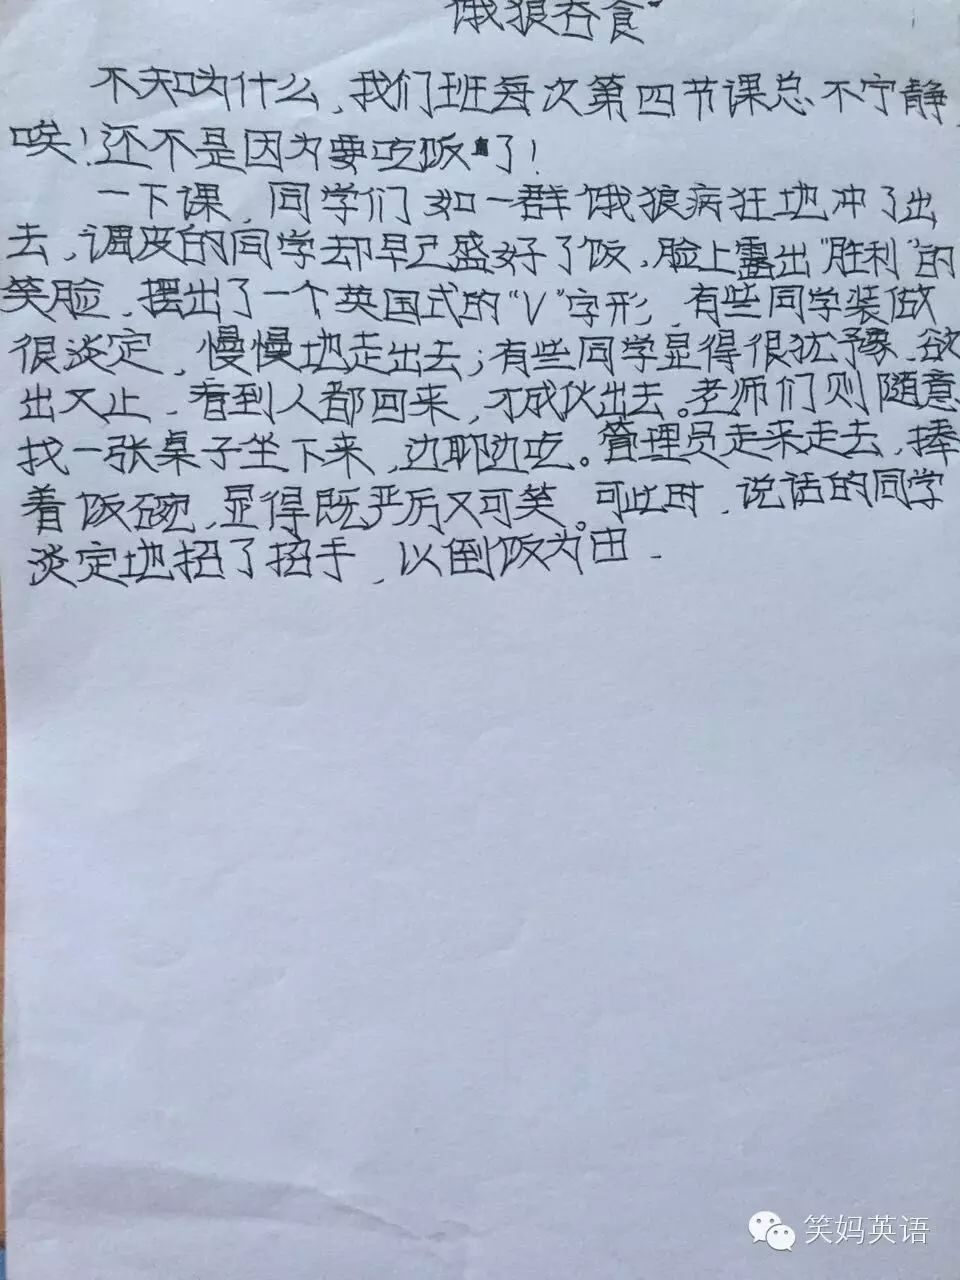 饿狼吞食"
不知为什么，我们班每次第四节课总不宁静，
唉！还不是因为要吃饭了！
一下课，同学们如一群饿狼病狂地冲了出
去，调皮的同学却早已盛好了饭，脸上露出"胜利"的
笑脸，摆出了一个英国式的"V"字形，有些同学装做
很淡定，慢慢地走出去；有些同学显得很犹豫，欲
出又止，看到人都回来，才成伙出去。老师们则随意
找一张桌子坐下来，边聊边吃。管理员走来走去，捧
着饭碗，显得既严厉又可笑。可此时，说话的同学
淡定地招了招手，以倒饭为由。
笑妈英语